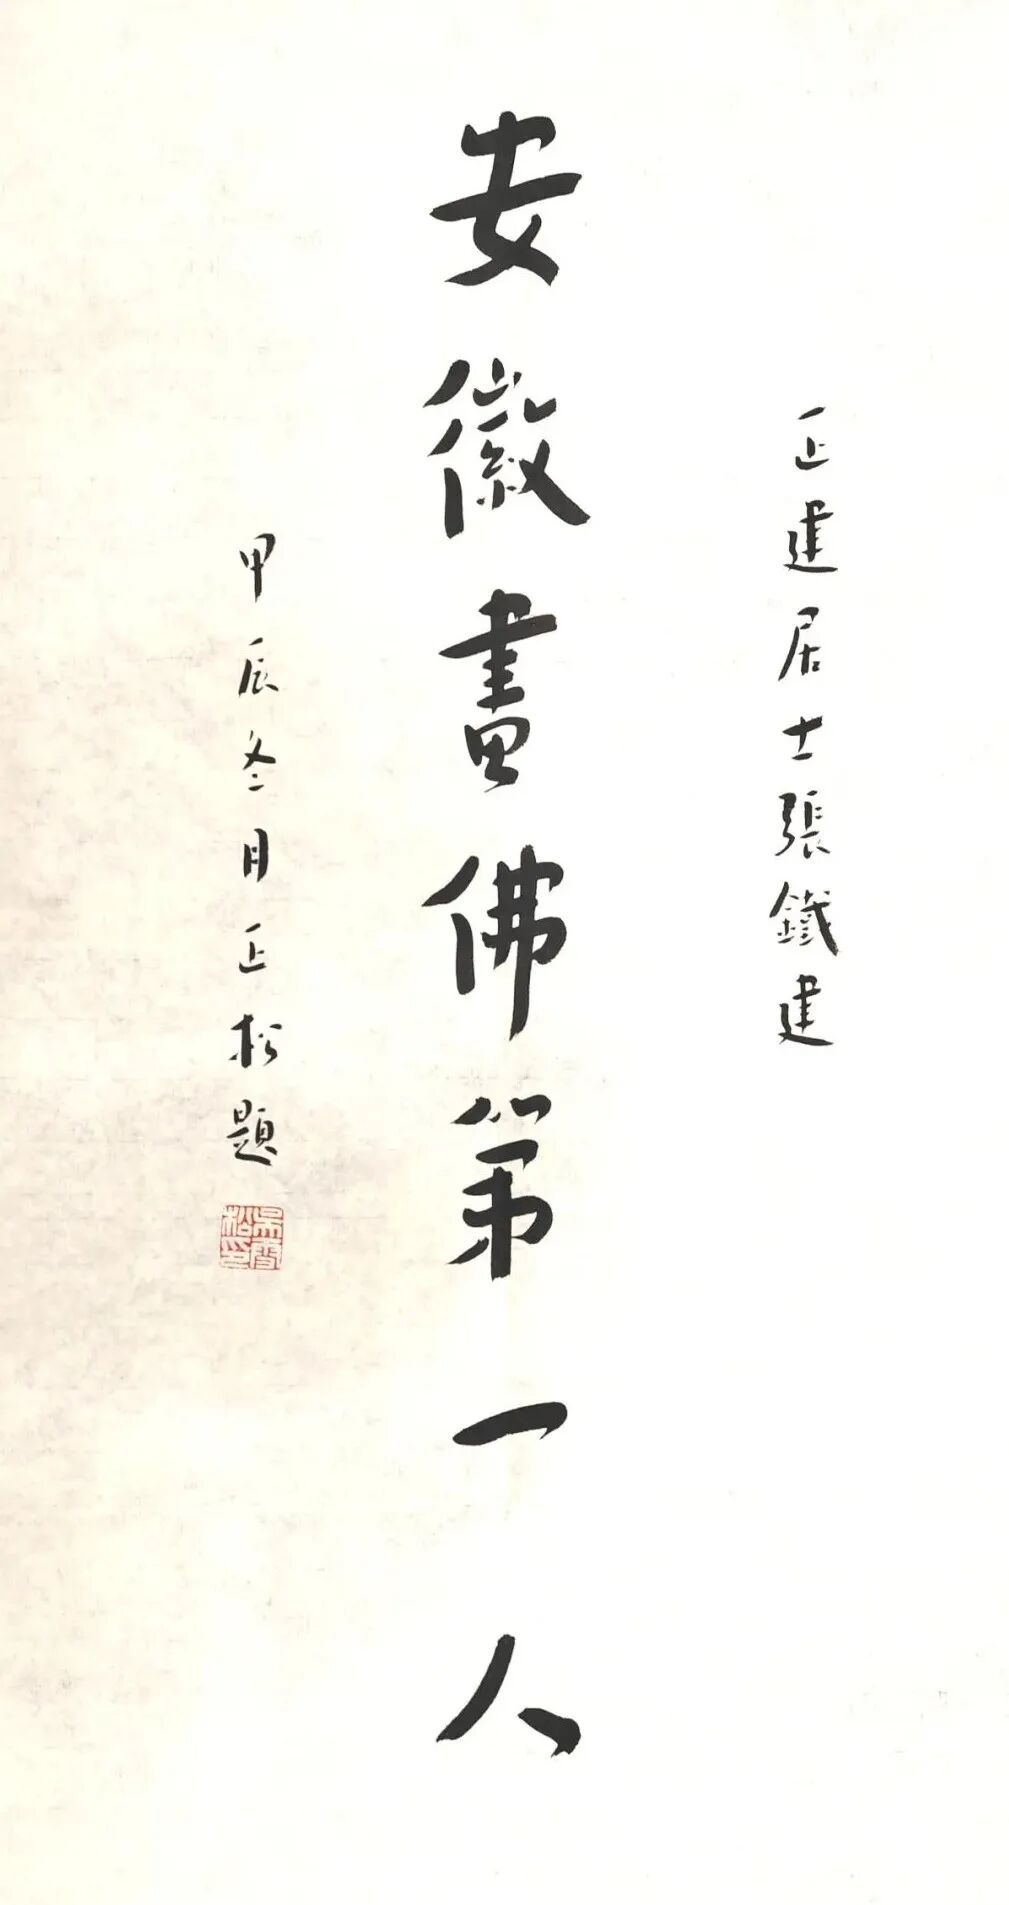 正建居士張鐵建
安徽畫佛第一人
甲辰冬月正松題